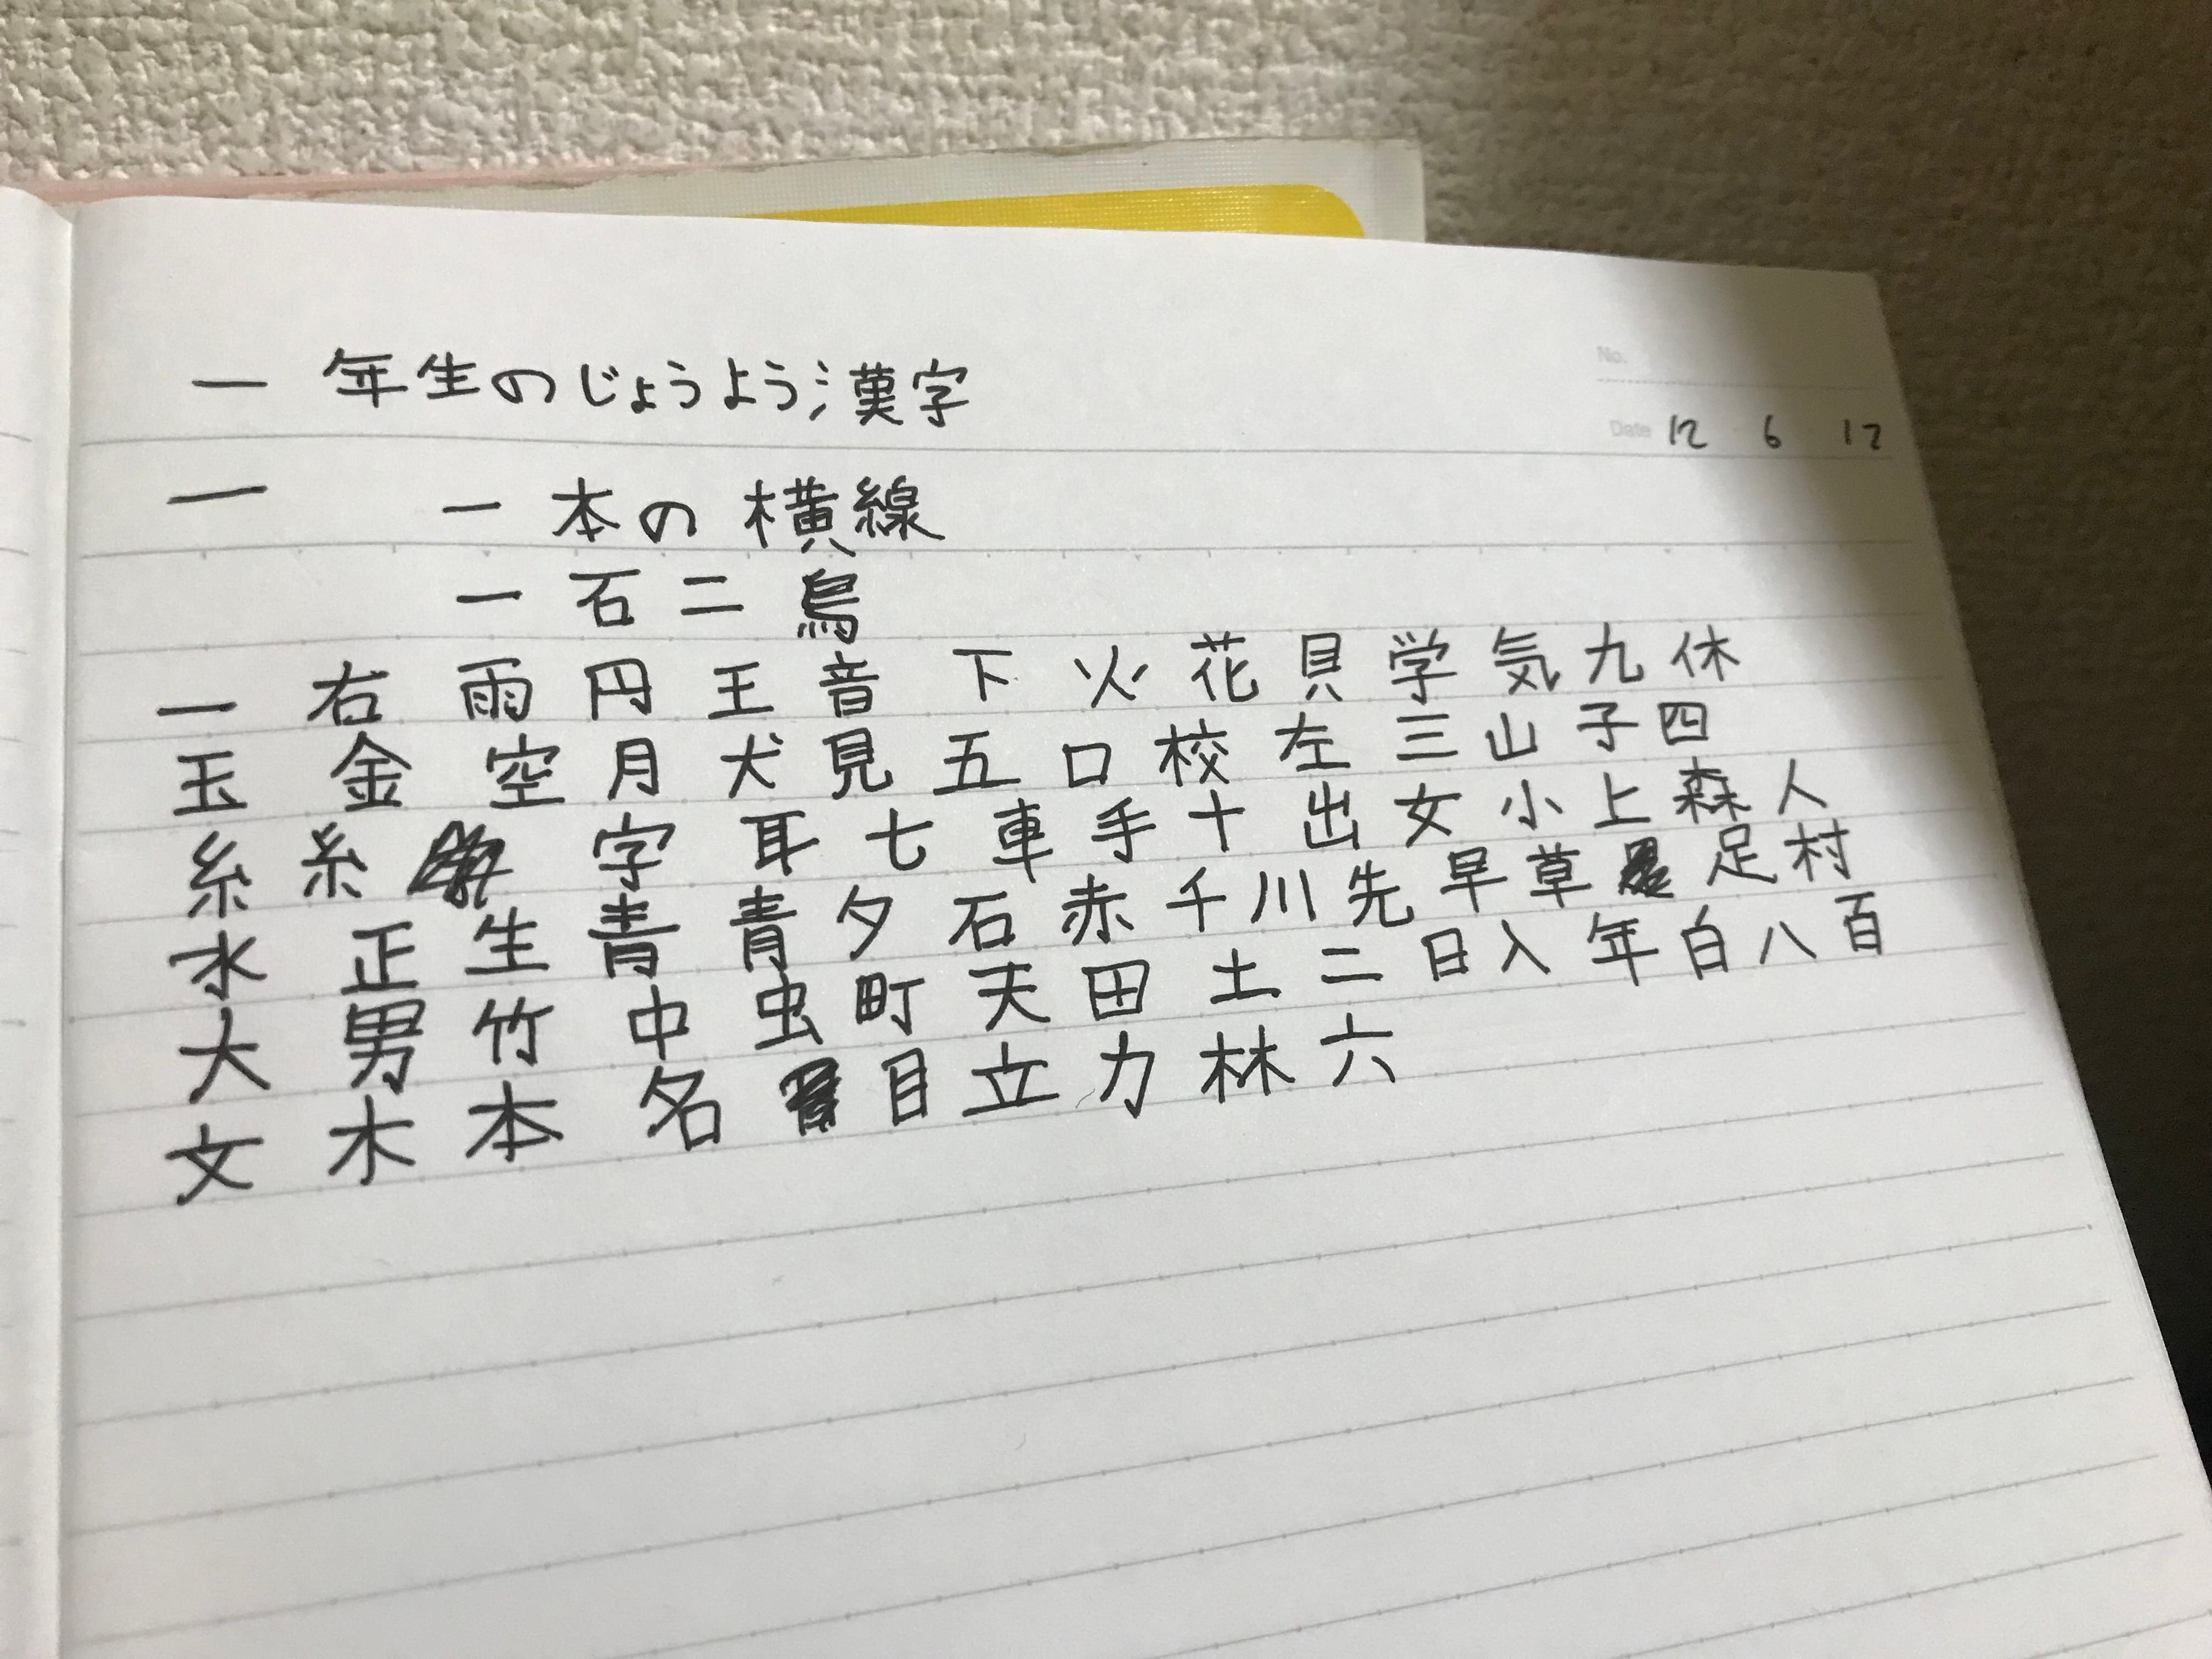 一年生のじょうよう漢字
No.
Date 12 6 17
一 一本の横線
一石二鳥
一 右 雨 円 王 音 下 火 花 貝 学 気 九 休
玉 金 空 月 犬 見 五 口 校 左 三 山 子 四
糸 糸 字 耳 七 車 手 十 出 女 小 上 森 人
水 正 生 青 青 夕 石 赤 千 川 先 早 草 足 村
大 男 竹 中 虫 町 天 田 土 二 日 入 年 白 八 百
文 木 本 名 目 立 力 林 六